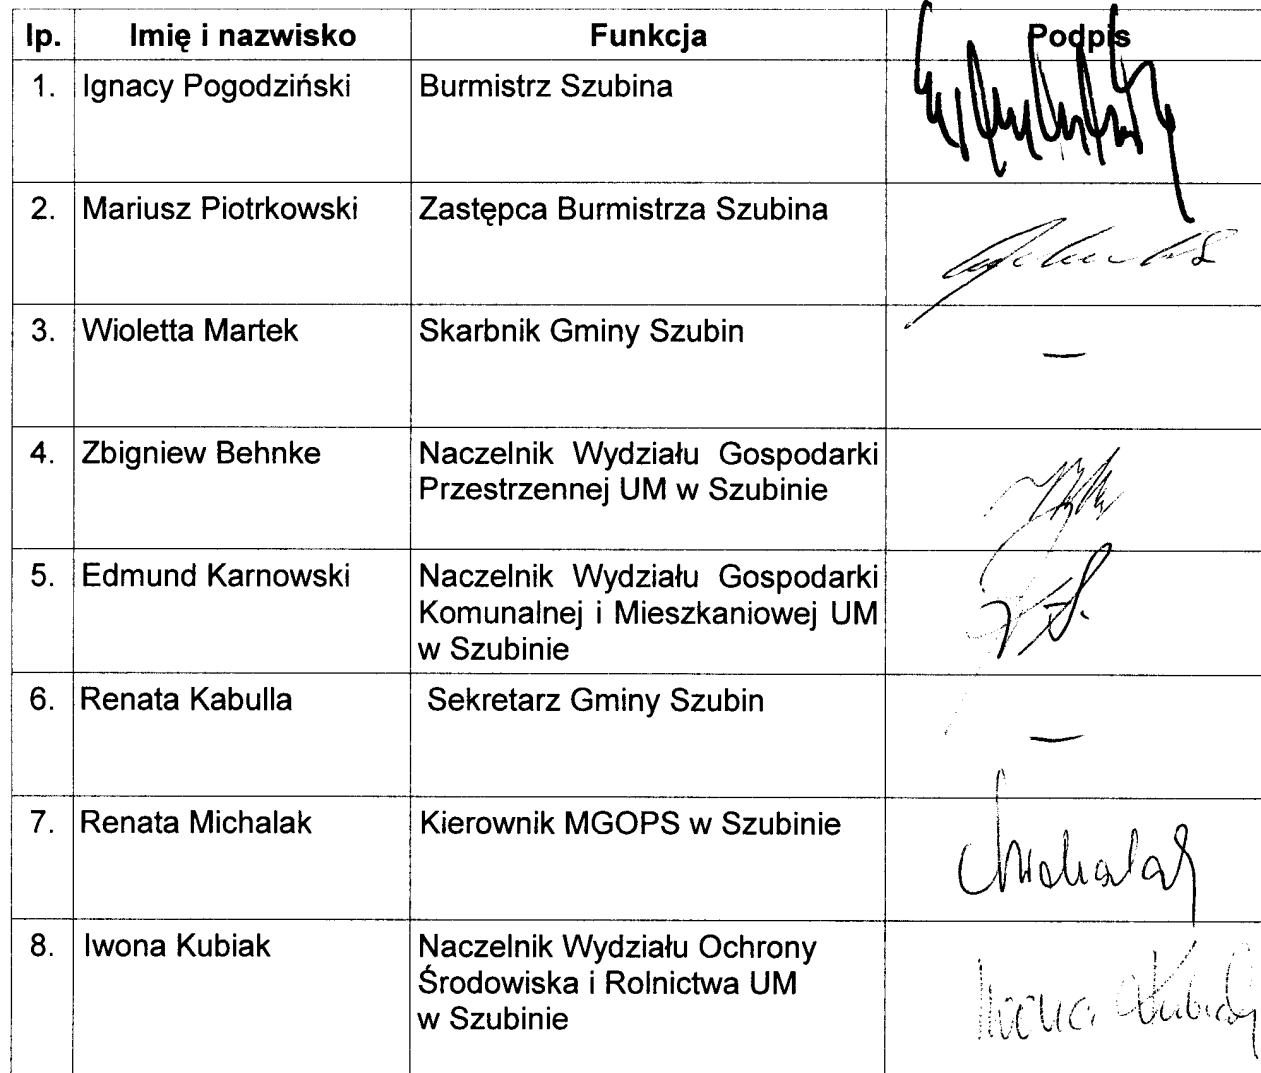 lp. Imię i nazwisko Funkcja Podpis
1. Ignacy Pogodziński Burmistrz Szubina
2. Mariusz Piotrkowski Zastępca Burmistrza Szubina
3. Wioletta Martek Skarbnik Gminy Szubin —
4. Zbigniew Behnke Naczelnik Wydziału Gospodarki
Przestrzennej UM w Szubinie
5. Edmund Karnowski Naczelnik Wydziału Gospodarki
Komunalnej i Mieszkaniowej UM
w Szubinie
6. Renata Kabulla Sekretarz Gminy Szubin —
7. Renata Michalak Kierownik MGOPS w Szubinie
Michalak
8. Iwona Kubiak Naczelnik Wydziału Ochrony
Środowiska i Rolnictwa UM
Iwona Kubiak
w Szubinie